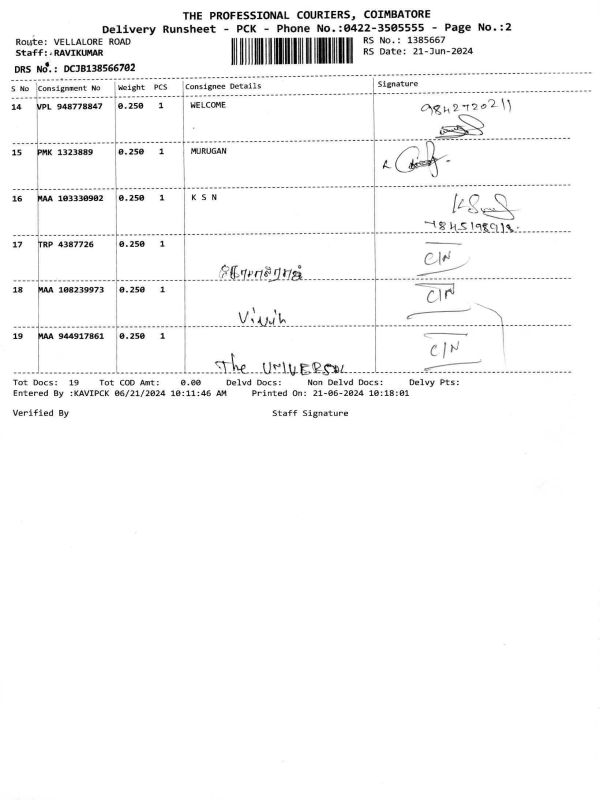 THE PROFESSIONAL COURIERS, COIMBATORE
Delivery Runsheet - PCK - Phone No.:0422-3505555 - Page No.:2
Route: VELLALORE ROAD
RS No.: 1385667
Staff: RAVIKUMAR
RS Date: 21-Jun-2024
DRS No.: DCJB138566702
S No Consignment No Weight PCS Consignee Details Signature
14 VPL 948778847 0.250 1 WELCOME 9842720211
15 PMK 1323889 0.250 1 MURUGAN
16 MAA 103330902 0.250 1 K S N
17 TRP 4387726 0.250 1 C/N
18 MAA 108239973 0.250 1 C/N
19 MAA 944917861 0.250 1 C/N
The UNIVERSAL
Tot Docs: 19 Tot COD Amt: 0.00 Delvd Docs: Non Delvd Docs: Delvy Pts:
Entered By :KAVIPCK 06/21/2024 10:11:46 AM Printed On: 21-06-2024 10:18:01
Verified By Staff Signature